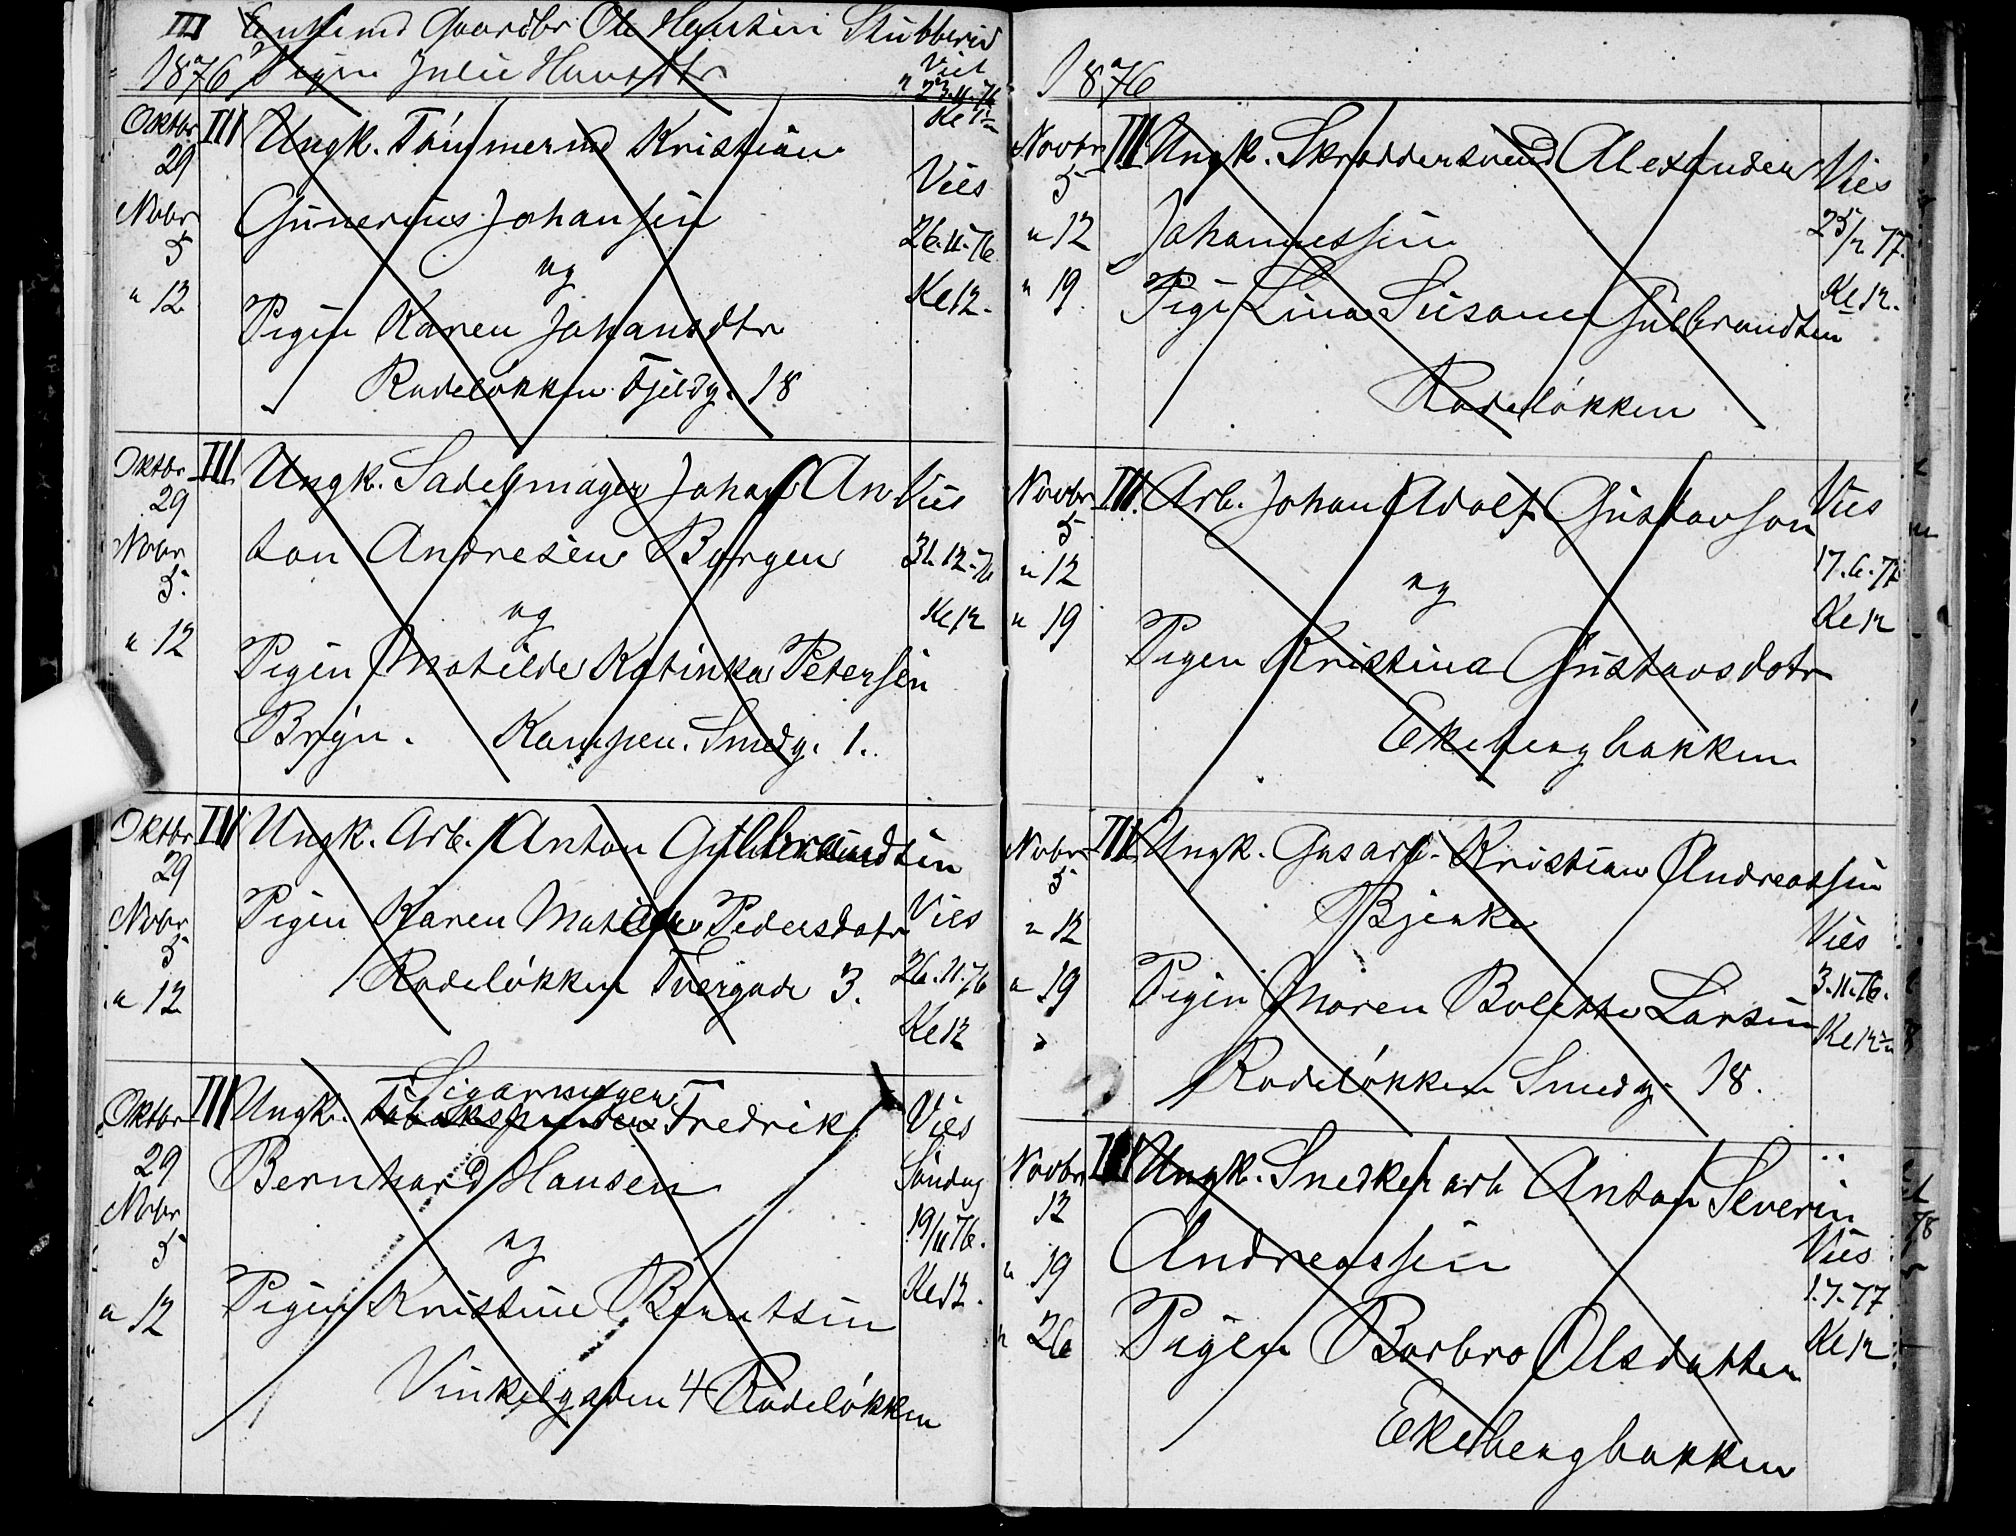 III Enkemd Gaardbr Ole Hansen Stubberud
1876 Pigen Julie Hansdtr Viet
" 23.11.76
Ke 12
Oktbr III Ungk. Tømmermd Kristian
29 Vies
Novbr Gunerius Johansen
5 26.11.76
og
" 12 Ke 12.
Pigen Karen Johansdtr
Rodeløkken Fjeldg. 18
Oktbr III Ungk. Sadelmager Johan An Vies
29
Novbr ton Andresen Borgen 31.12.76
5.
og Ke 12
" 12
Pigen Matilde Katinka Petersen
Bryn. Kampen. Smedg. 1.
Oktbr III Ungk. Arb. Anton Gulbrandsen
29
Novbr Pigen Karen Pedersdatr Vies
5
" 12 Rodeløkken Tvergade 3. 26.11.76
Ke 12
Sigarmager
Oktbr III Ungk. Tobakspinder Fredrik Vies
29 Bernhard Hansen Søndag
Novbr 19/11 76.
5 og
Ke 12.
" 12 Pigen Kristine Berntsen
Vinkelgaden 4 Rodeløkken
1876
Novbr III Ungk. Skræddersvend Alexander Vies
5
" 12 Johannessen 25/2 77.
" 19 Pige Lina Susane Gulbrandsen Ke 12.
Rodeløkken
Novbr III Arb. Johan Adolf Gustavson Vies
5
" 12 og 17.6.77
" 19 Ke 12
Pigen Kristina Gustavsdotr
Ekebergbakken
Novbr III Ungk. Gasarb. Kristian Andreassen
5
" 12 Bjerke Vies
" 19 Pigen Maren Bolette Larsen 3.11.76.
Ke 12
Rodeløkken Smedg. 18.
Novbr III Ungk. Snedkerarb Anton Severin
12
" 19 Andreassen Vies
1.7.77
" 26 Pigen Barbro Olsdatter Ke 12
Ekebergbakken